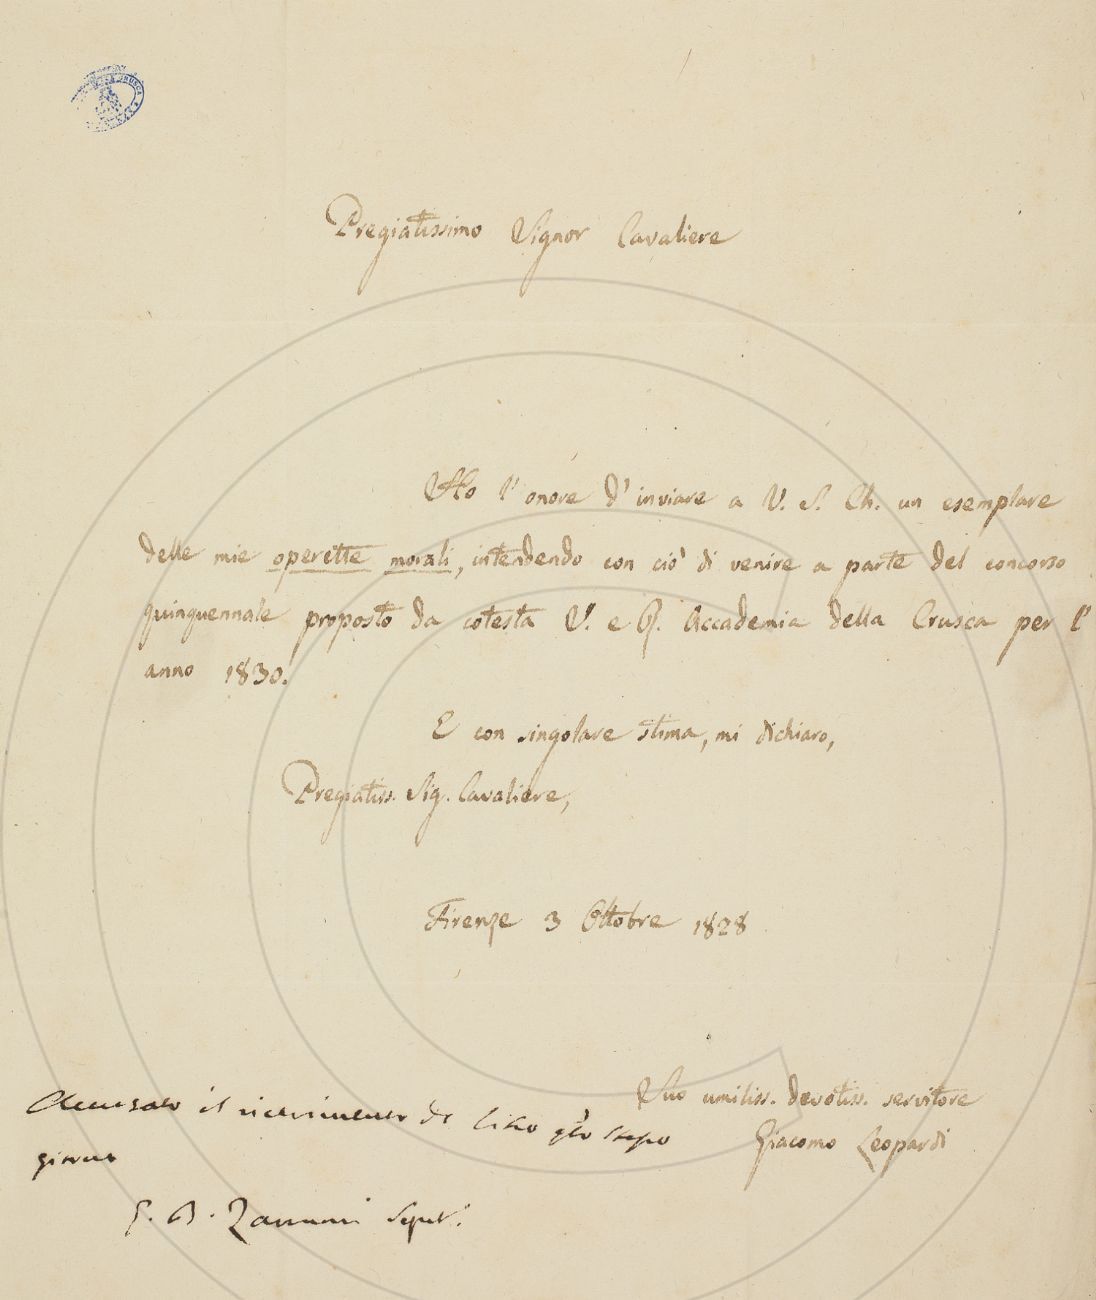 Pregiatissimo Signor Cavaliere
Ho l'onore d'inviare a V. S. Ch. un esemplare
delle mie operette morali, intendendo con ciò di venire a parte del concorso
quinquennale proposto da cotesta I. e R. Accademia della Crusca per l'
anno 1830.
E con singolare stima, mi dichiaro,
Pregiatiss. Sig. Cavaliere,
Firenze 3 Ottobre 1828
Suo umiliss. devotiss. servitore
Giacomo Leopardi
Accusato il ricevimento di stesso
giorno
G. B. Zannoni Segret.